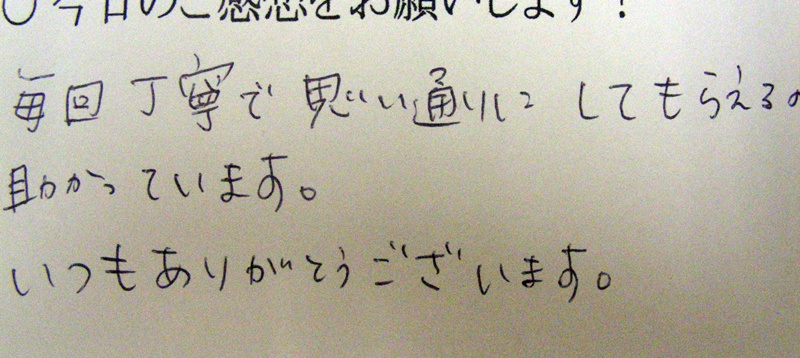 ○今日のご感想をお願いします！
毎回丁寧で思い通りにしてもらえるの
助かっています。
いつもありがとうございます。